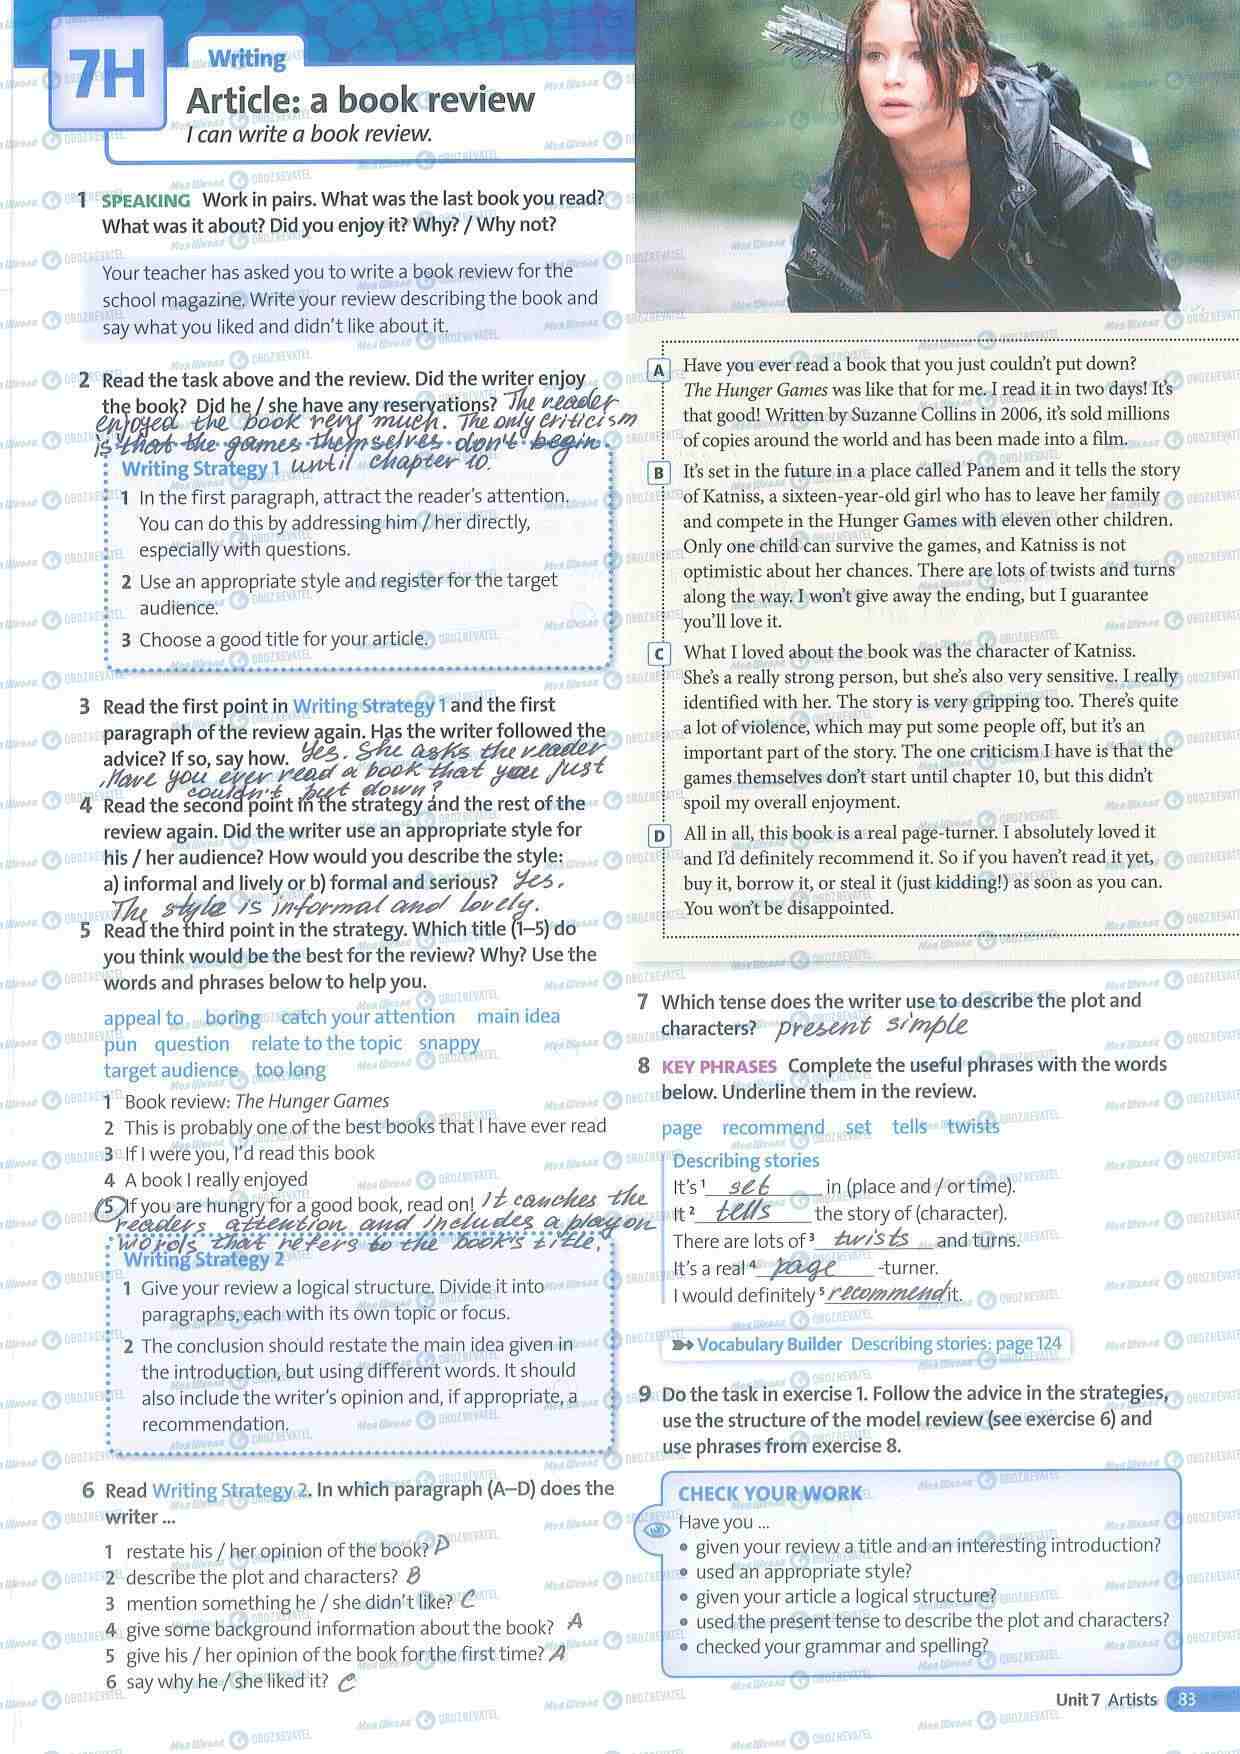 7H
Writing
Article: a book review
I can write a book review.
1 SPEAKING Work in pairs. What was the last book you read?
What was it about? Did you enjoy it? Why? / Why not?
Your teacher has asked you to write a book review for the
school magazine. Write your review describing the book and
say what you liked and didn't like about it.
2 Read the task above and the review. Did the writer enjoy
the book? Did he / she have any reservations? The reader
enjoyed the book very much. The only criticism
is that the games themselves don't begin
Writing Strategy 1 until chapter 10.
1 In the first paragraph, attract the reader's attention.
You can do this by addressing him / her directly,
especially with questions.
2 Use an appropriate style and register for the target
audience.
3 Choose a good title for your article.
3 Read the first point in Writing Strategy 1 and the first
paragraph of the review again. Has the writer followed the
advice? If so, say how. Yes. She asks the reader
Have you ever read a book that you just
couldn't put down?
4 Read the second point in the strategy and the rest of the
review again. Did the writer use an appropriate style for
his / her audience? How would you describe the style:
a) informal and lively or b) formal and serious? Yes.
The style is informal and lovely.
5 Read the third point in the strategy. Which title (1–5) do
you think would be the best for the review? Why? Use the
words and phrases below to help you.
appeal to boring catch your attention main idea
pun question relate to the topic snappy
target audience too long
1 Book review: The Hunger Games
2 This is probably one of the best books that I have ever read
3 If I were you, I'd read this book
4 A book I really enjoyed
5 If you are hungry for a good book, read on! It canches the
readers attention and includes a play on
words that refers to the book's title.
Writing Strategy 2
1 Give your review a logical structure. Divide it into
paragraphs, each with its own topic or focus.
2 The conclusion should restate the main idea given in
the introduction, but using different words. It should
also include the writer's opinion and, if appropriate, a
recommendation.
6 Read Writing Strategy 2. In which paragraph (A–D) does the
writer ...
1 restate his / her opinion of the book? D
2 describe the plot and characters? B
3 mention something he / she didn't like? C
4 give some background information about the book? A
5 give his / her opinion of the book for the first time? A
6 say why he / she liked it? C
A Have you ever read a book that you just couldn't put down?
The Hunger Games was like that for me. I read it in two days! It's
that good! Written by Suzanne Collins in 2006, it's sold millions
of copies around the world and has been made into a film.
B It's set in the future in a place called Panem and it tells the story
of Katniss, a sixteen-year-old girl who has to leave her family
and compete in the Hunger Games with eleven other children.
Only one child can survive the games, and Katniss is not
optimistic about her chances. There are lots of twists and turns
along the way. I won't give away the ending, but I guarantee
you'll love it.
C What I loved about the book was the character of Katniss.
She's a really strong person, but she's also very sensitive. I really
identified with her. The story is very gripping too. There's quite
a lot of violence, which may put some people off, but it's an
important part of the story. The one criticism I have is that the
games themselves don't start until chapter 10, but this didn't
spoil my overall enjoyment.
D All in all, this book is a real page-turner. I absolutely loved it
and I'd definitely recommend it. So if you haven't read it yet,
buy it, borrow it, or steal it (just kidding!) as soon as you can.
You won't be disappointed.
7 Which tense does the writer use to describe the plot and
characters? present simple
8 KEY PHRASES Complete the useful phrases with the words
below. Underline them in the review.
page recommend set tells twists
Describing stories
It's 1 set in (place and / or time).
It 2 tells the story of (character).
There are lots of 3 twists and turns.
It's a real 4 page -turner.
I would definitely 5 recommend it.
Vocabulary Builder Describing stories: page 124
9 Do the task in exercise 1. Follow the advice in the strategies,
use the structure of the model review (see exercise 6) and
use phrases from exercise 8.
CHECK YOUR WORK
Have you ...
• given your review a title and an interesting introduction?
• used an appropriate style?
• given your article a logical structure?
• used the present tense to describe the plot and characters?
• checked your grammar and spelling?
Unit 7 Artists 83